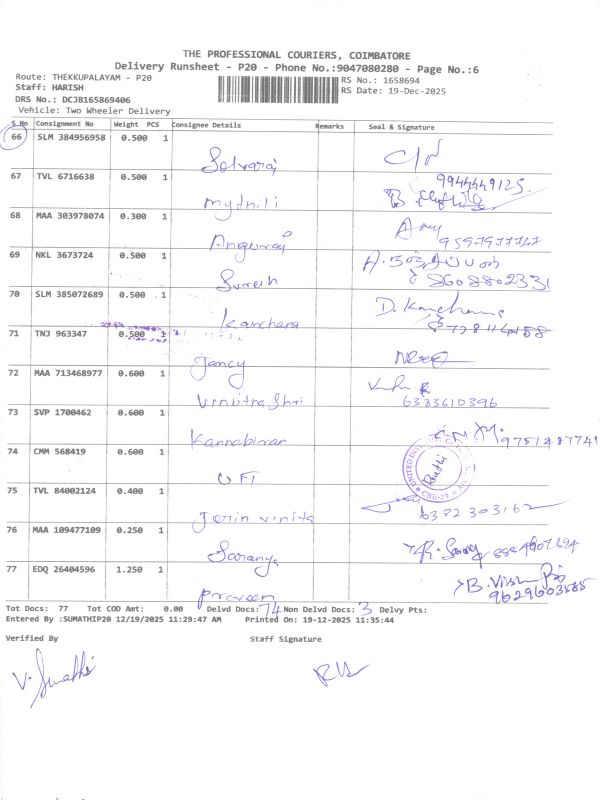 THE PROFESSIONAL COURIERS, COIMBATORE
Delivery Runsheet - P20 - Phone No.:9047080280 - Page No.:6
Route: THEKKUPALAYAM - P20
RS No.: 1658694
Staff: HARISH
RS Date: 19-Dec-2025
DRS No.: DCJB165869406
Vehicle: Two Wheeler Delivery
S No Consignment No Weight PCS Consignee Details Remarks Seal & Signature
66 SLM 384956958 0.500 1 Selvaraj
67 TVL 6716638 0.500 1 mythili 9944449125
68 MAA 303978074 0.300 1 Anguraj
69 NKL 3673724 0.500 1 Suresh 8608802331
70 SLM 385072689 0.500 1 Kanchana D. Kanchana
71 TNJ 963347 0.500 1 Jancy
72 MAA 713468977 0.600 1 Vinithashri 6383610396
73 SVP 1700462 0.600 1 Kannabiran 9751487741
74 CMM 568419 0.600 1 UFI CBE-29
75 TVL 84002124 0.400 1 Jerin vinita 6382303162
76 MAA 109477109 0.250 1 Saranya
77 EDQ 26404596 1.250 1 Praveen 9629603585
Tot Docs: 77 Tot COD Amt: 0.00 Delvd Docs: 74 Non Delvd Docs: 3 Delvy Pts:
Entered By :SUMATHIP20 12/19/2025 11:29:47 AM Printed On: 19-12-2025 11:35:44
Verified By Staff Signature
V. Sumathi